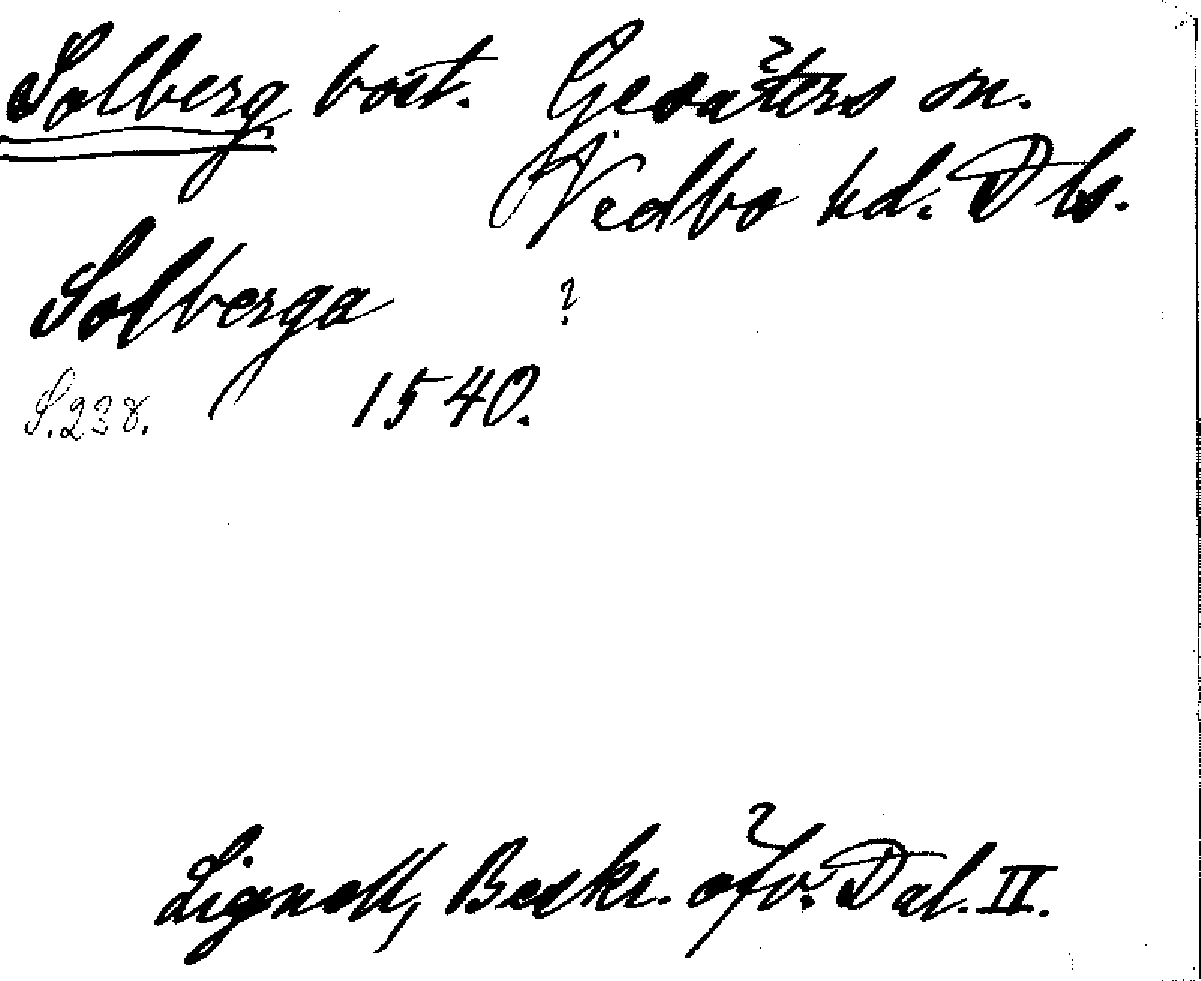 Solberg bost. Gesäters sn.
Vedbo hd. Dls.
Solberga ?
S. 238. 1540.
Lignell, Beskr. öfv. Dal. II.